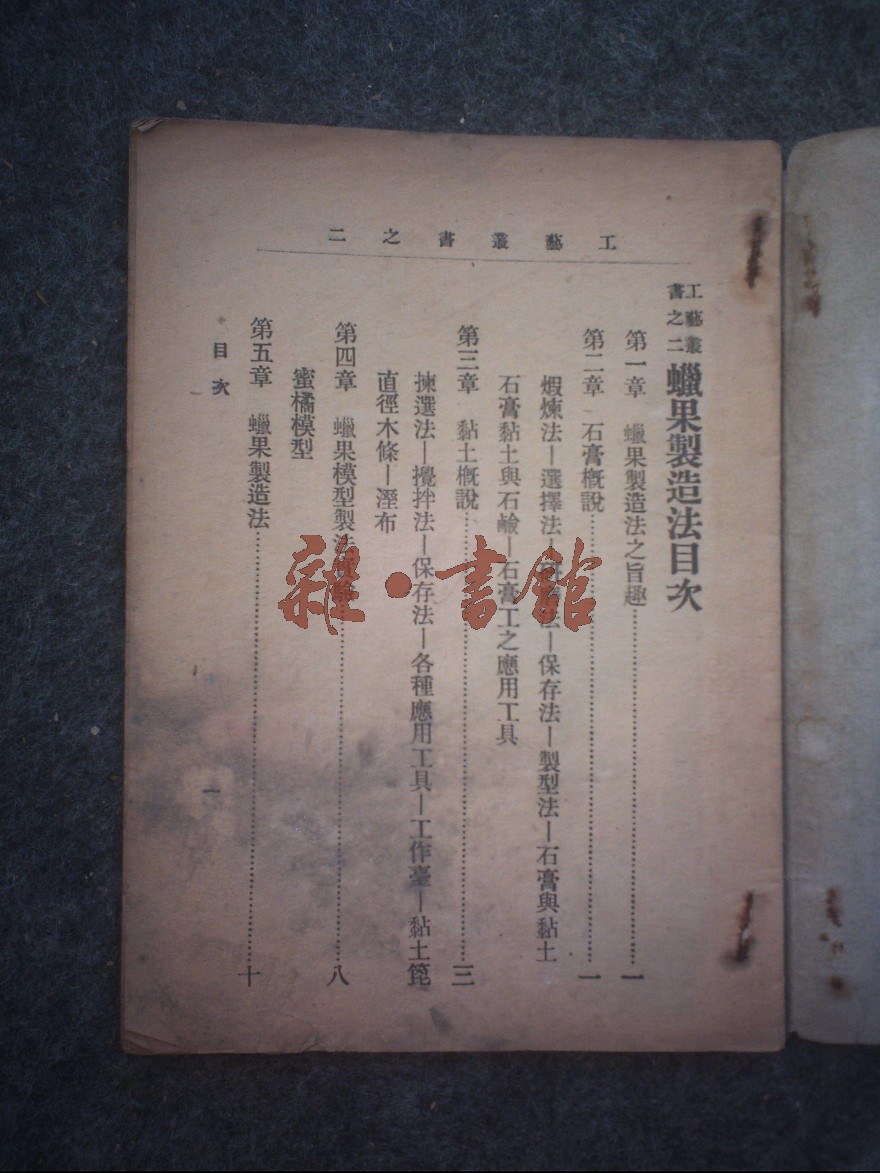 工藝叢書之二
工藝叢書之二 蠟果製造法目次
第一章 蠟果製造法之旨趣……一
第二章 石膏槪說……一
煆煉法—選擇法—法—保存法—製型法—石膏與黏土
石膏黏土與石鹼—石膏工之應用工具
第三章 黏土槪說……三
揀選法—攪拌法—保存法—各種應用工具—工作臺—黏土篦
直徑木條—溼布
第四章 蠟果模型製法……八
蜜橘模型
第五章 蠟果製造法……十
目次 一
雜·書館